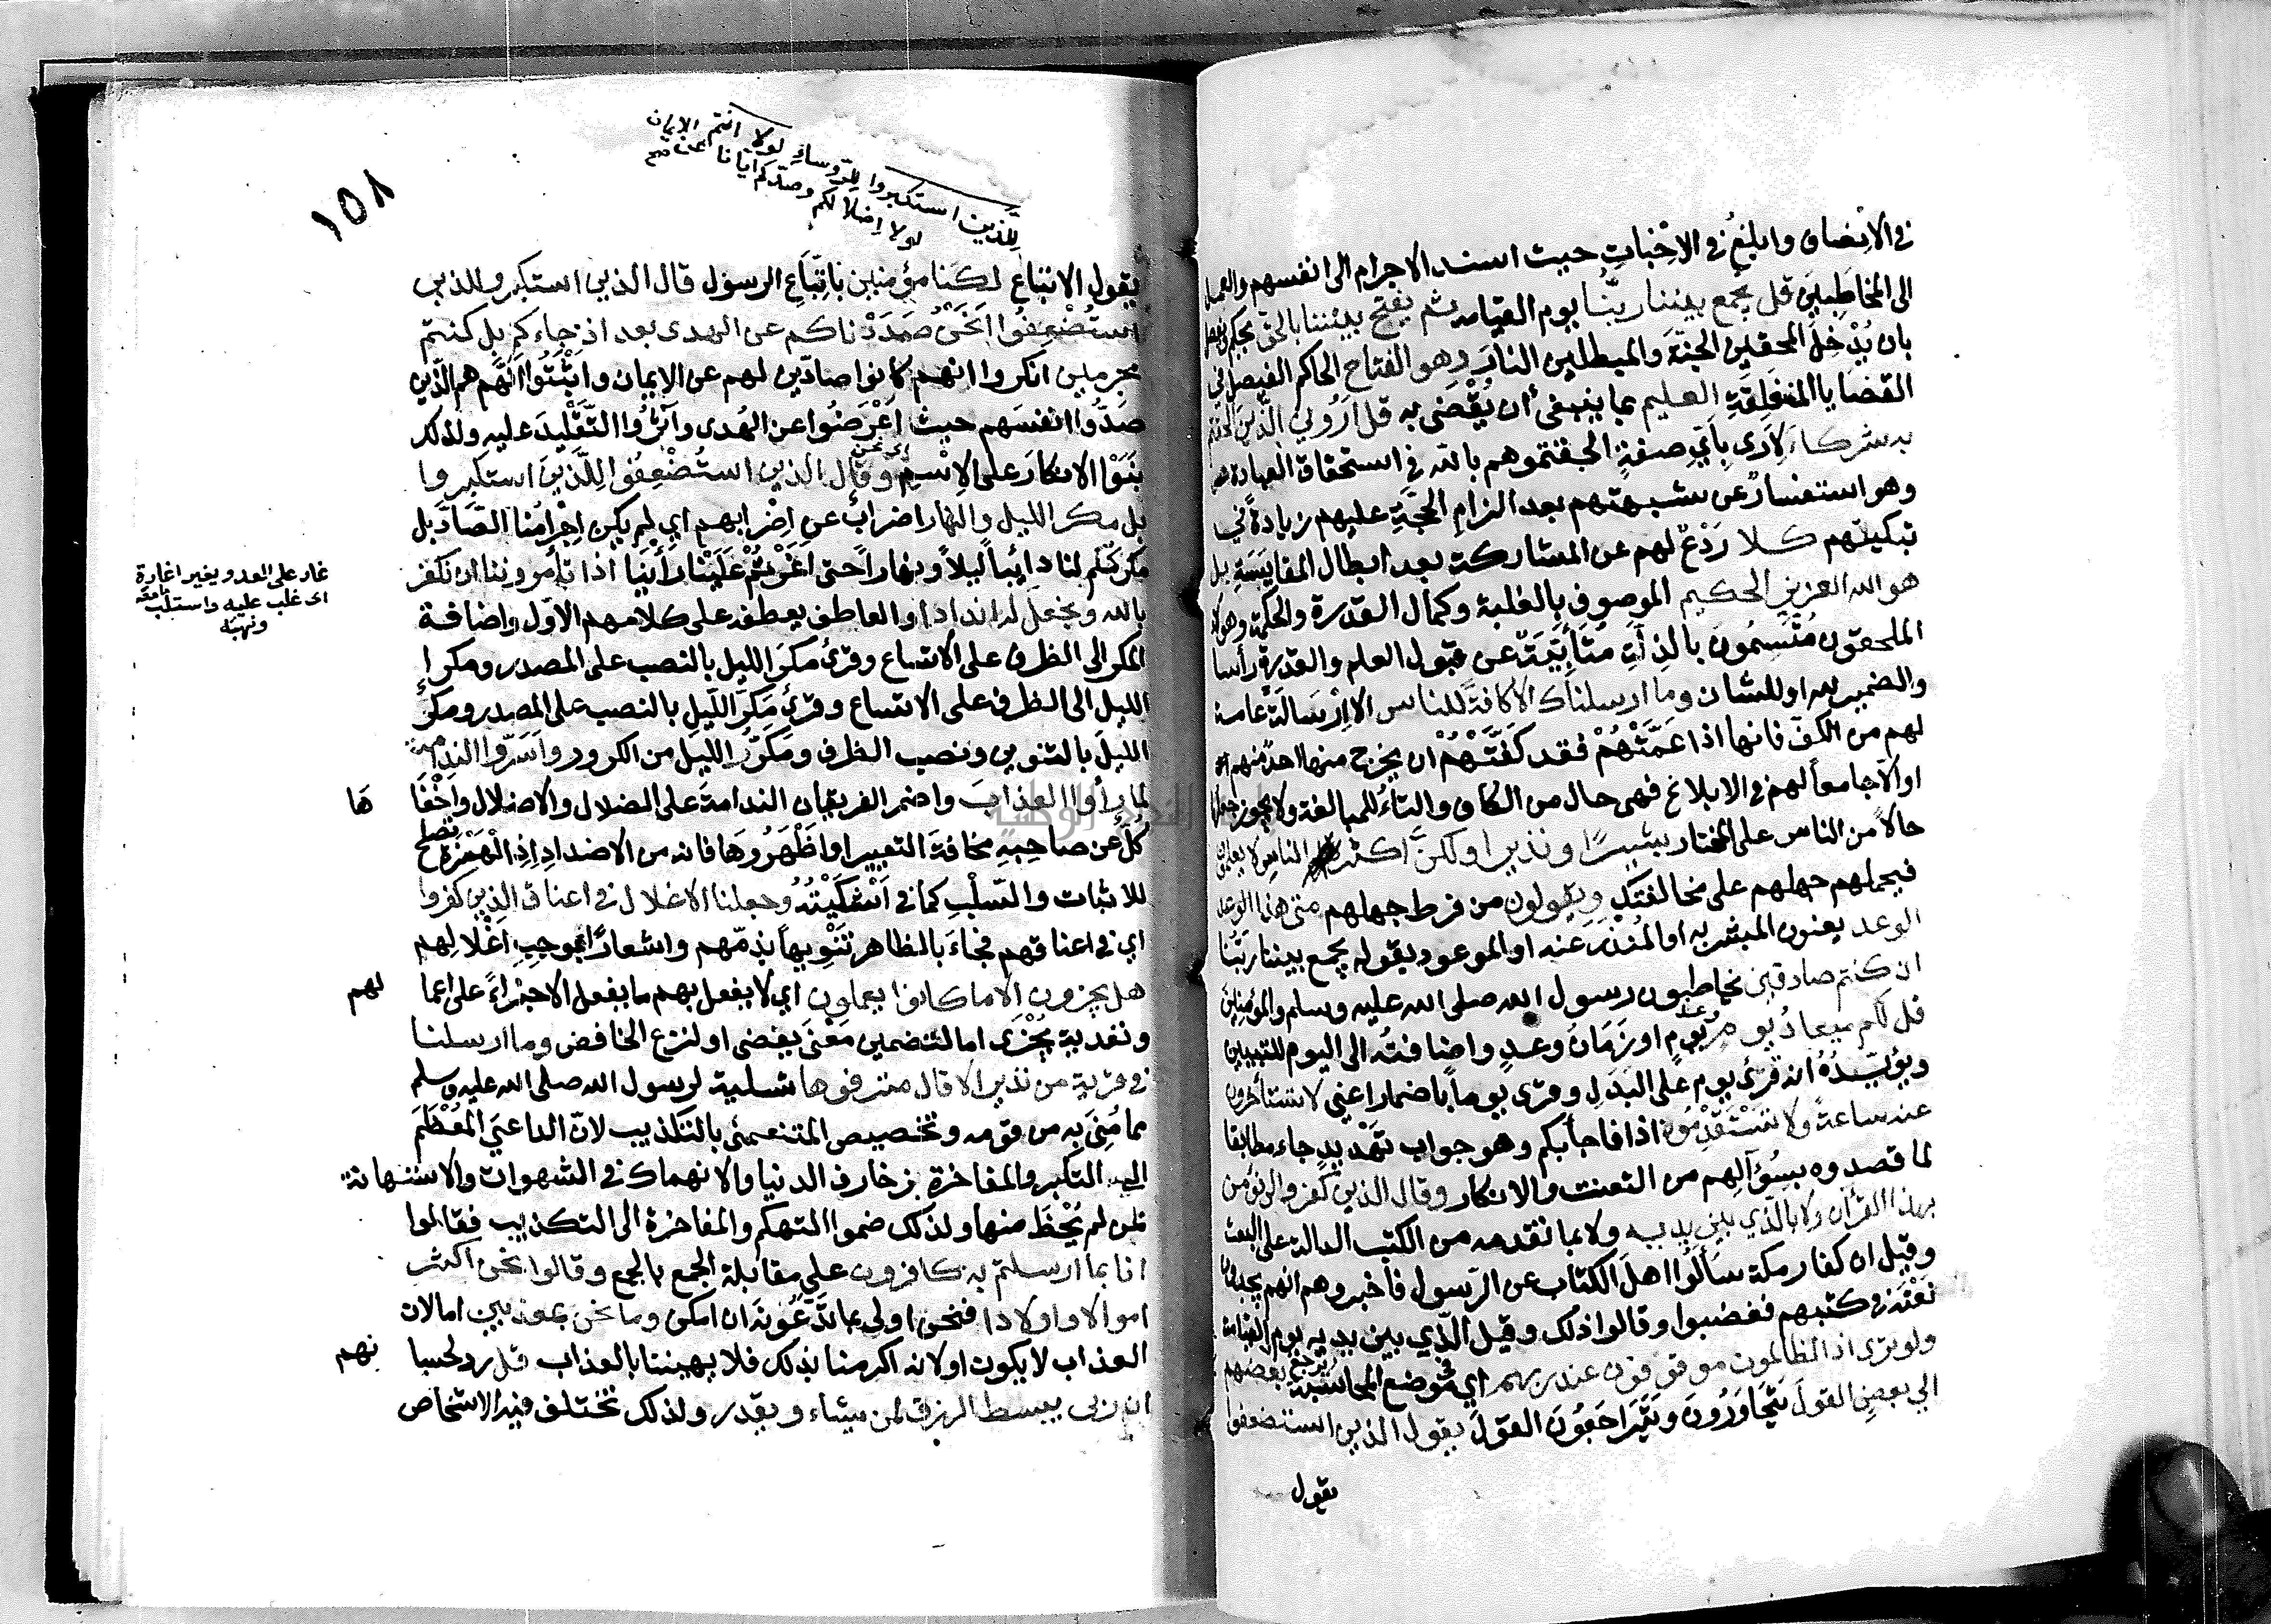 في الانصاف وابلغ في الاخبات حيث اسند الاجرام الى انفسهم والعمل
الى المخاطبين قل يجمع بيننا ربنا يوم القيامه ثم يفتح بيننا بالحق يحكم ويفصل
بان يُدْخِلَ المحقين الجنة والمبطلين النار وهو الفتاح الحاكم الفيصل في
القضايا المنغلقة العليم بما ينبغي أن يُقْضى به قل أَرُوني الذين الحقتم
به شركاء لِأَرى بِأَيِّ صفةٍ الحقتموهم بالله في استحقاق العبادة
وهو استفسار عن شبهتهم بعد الزام الحجّة عليهم زيادة في
تبكيتهم كلا رَدْع لهم عن المشاركة بعد ابطال المقايسة بل
هو الله العزيز الحكيم الموصوف بالغلبة وكمال القدرة والحكمة وهؤلا
الملحقون مُتَّسِمُون بالذلة متأبية عن قبول العلم والقدرة رأسا
والضمير لله او للشان وما ارسلناك الا كافة للناس الا ارسالة عامة
لهم من الكفّ فانها اذا عَمَّتْهُمْ فقد كَفَّتْهُمْ ان يخرج منها احد منهم
او الا جامعاً لهم في الابلاغ فهي حال من الكاف والتاء للمبالغة ولا يجوز جعلها
حالاً من الناس على المختار بشيرًا ونذيرا ولكنّ اكثر الناس لا يعلمون
فيحملهم جهلهم على مخالفتك ويقولون من فرط جهلهم متى هذا الوعد
الوعد يعنون المبشر به او المُنذر عنه او الموعود بقوله يجمع بيننا ربّنا
ان كنتم صادقين يخاطبون رسول الله صلى الله عليه وسلم والمؤمنين
قل لكم ميعادُ يوم وعد يوم او زَمَانُ وعد واضافتُه الى اليوم للتبيين
ويؤيّده انه قرئ يوم على البدل وقرى يوماً باضمار اعني لا تستأخرون
عنه ساعة ولا تستقدمون اذا فاجأكم وهو جواب تهديد جاء مطابقا
لما قصدوه بسُؤالِهم من التعنت والانكار وقال الذين كفروا لن نؤمن
بهذا القرآن ولا بالّذي بين يديه ولا بما تقدمه من الكتب الدالة على البعث
وقيل ان كفار مكة سألوا اهل الكتاب عن الرّسول فاخبروهم انهم يجدون
نَعْتَه في كتبهم فغضبوا وقالوا ذلك وقيل الّذي بين يديه يوم القيامة
ولو ترى اذ الظالمون موقوفون عند ربهم اي في موضع المحاسبة يرجع بعضهم
الى بعضٍ القول يَتَحَاوَرُون ويَتَراجَعُون القولَ يقول الذين استضعفوا
يقول
١٥٨
للذين استكبروا للرّوساءِ لولا انتم
لولا اضلالكم وصدّكم ايّانا عن الايمان
يقول الاتباع لكنا مؤمنين باتِّبَاع الرسول قال الذين استكبروا للذين
استُضْعِفُوا انحن صددناكم عن الهدى بعد اذ جاءكم بل كنتم
مجرمين انكروا انهم كانوا صادّين لهم عن الايمان واثبتوا انّهم هم الّذين
صدُّوا انفسَهم حيث اعرضوا عن الهُدى وآثَرُوا التّقليدَ عليه ولذلك
بَنَوْا الانكارَ على الاِسْم اي نحن وقال الذين استُضْعِفُوا للّذينَ استكبروا
بل مكر الليل والنهار اضراب عن اِضْرابهم اي لم يكن اجرامُنا الصّادّ بل
مكركم لنا دائباً ليلاً ونهاراً حتى اَغَرْتُمْ عَلَيْنا رَأْينا اذ تأمروننا ان نكفر
بالله ونجعل له اندادا والعاطف يعطفه على كلامهم الاوّل واضافة
المكر الى الظرف على الاتساع وقرئ مكرَ الليل بالنصب على المصدر ومكرا
الليل الى الظرف على الاتساع وقرئ مَكَرَّ الليلِ بالنصب على المصدر ومكرٌ
الليلَ بالتنوين ونصب الظرف ومَكَرُّ الليل من الكرور واَسَرّوا الندامة
لما رأوا العذابَ واضمر الفريقان الندامةَ على الضلال والاضلال واَخْفَا ها
كلٌّ عن صاحبهِ مخافةَ التعيير او اَظْهَرُوهَا فانه من الاضدادِ اِذِ الْهَمْزَة تصلح
للاثبات والسّلب كما في اَشْكَيْتُه وجعلنا الاغلال في اعناق الذين كفروا
اي في اعناقهم فجاءَ بالظاهر تَنْويهاً بذمّهم واشعاراً بموجب اَغْلالهم
هل يجزون الا ما كانوا يعملون اي لا يفعل بهم ما يفعل الا جزاءً على اعما لهم
وتعدية يُجْزَى اما لتضمين مَعْنى يقضى او لنزع الخافض وما ارسلنا
في قرية من نذير الا قال مترفوها تسلية لرسول الله صلى الله عليه وسلم
مما مُنِيَ به من قومه وتخصيص المتنعمين بالتكذيب لانّ الداعيَ المُعْظَمَ
اليه التكبر والمفاخرة بزخارف الدنيا والانهماك في الشهوات والاستهانة
بمن لم يُحْظَ منها ولذلك ضموا التهكم والمفاخرة الى التكذيب فقالوا
انا بما ارسلتم به كافرون على مقابلة الجمع بالجمع وقالوا نحن اكثر
اموالا واولادا فنحن اولى بما تدّعُونه ان امكن وما نحن بمعذبين اما لان
العذاب لا يكون او لانه اكرمنا بذلك فلا يهيننا بالعذاب قل رد لحسبا نهم
ان ربى يبسط الرزق لمن يشاء ويقدر ولذلك تختلف فيه الاشخاص
غار على العدو يغير اغارة
اى غلب عليه واستلب
ونهبه